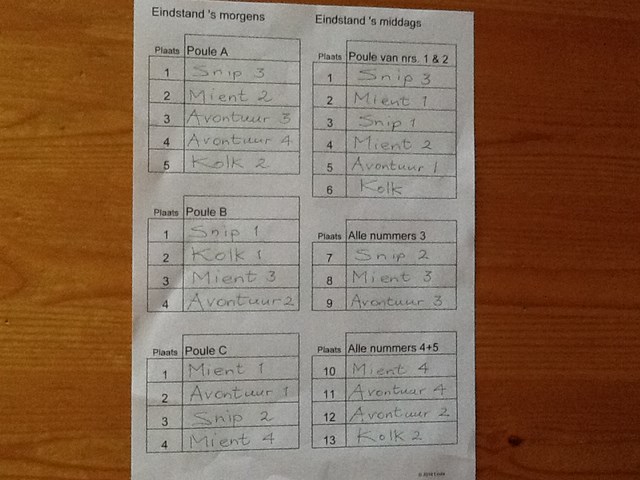 Eindstand 's morgens
Plaats Poule A
1 Snip 3
2 Mient 2
3 Avontuur 3
4 Avontuur 4
5 Kolk 2
Plaats Poule B
1 Snip 1
2 Kolk 1
3 Mient 3
4 Avontuur 2
Plaats Poule C
1 Mient 1
2 Avontuur 1
3 Snip 2
4 Mient 4
Eindstand 's middags
Plaats Poule van nrs. 1 & 2
1 Snip 3
2 Mient 1
3 Snip 1
4 Mient 2
5 Avontuur 1
6 Kolk
Plaats Alle nummers 3
7 Snip 2
8 Mient 3
9 Avontuur 3
Plaats Alle nummers 4+5
10 Mient 4
11 Avontuur 4
12 Avontuur 2
13 Kolk 2